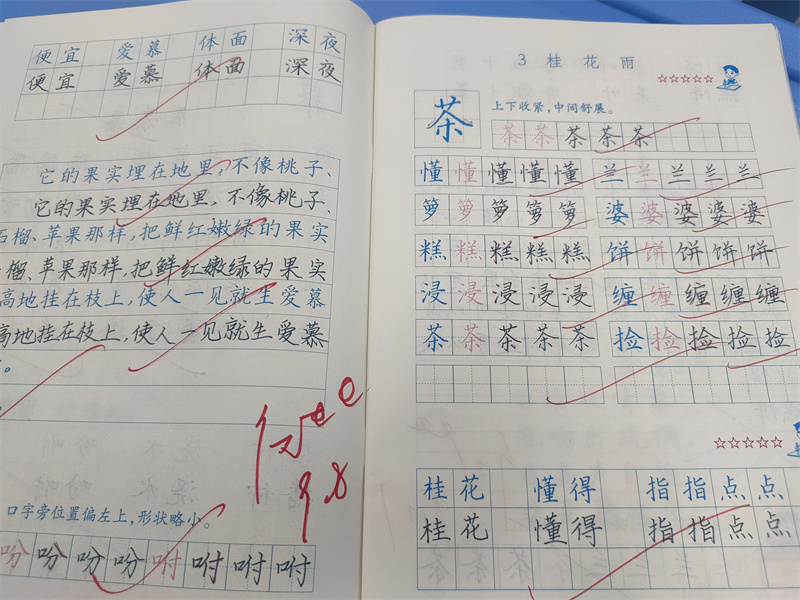 便宜 爱慕 体面 深夜
便宜 爱慕 体面 深夜
它的果实埋在地里,不像桃子、
它的果实埋在地里,不像桃子、
石榴、苹果那样,把鲜红嫩绿的果实
榴、苹果那样,把鲜红嫩绿的果实
高地挂在枝上,使人一见就生爱慕
高地挂在枝上,使人一见就生爱慕
。
口字旁位置偏左上,形状略小。
吩吩吩吩咐咐咐咐
9.8
3 桂花雨
☆☆☆☆☆
茶 上下收紧,中间舒展。
茶茶茶茶茶
懂懂懂懂懂 兰兰兰兰兰
箩箩箩箩箩 婆婆婆婆婆
糕糕糕糕糕 饼饼饼饼饼
浸浸浸浸浸 缠缠缠缠缠
茶茶茶茶茶 捡捡捡捡捡
☆☆☆☆☆
桂花 懂得 指指点点
桂花 懂得 指指点点